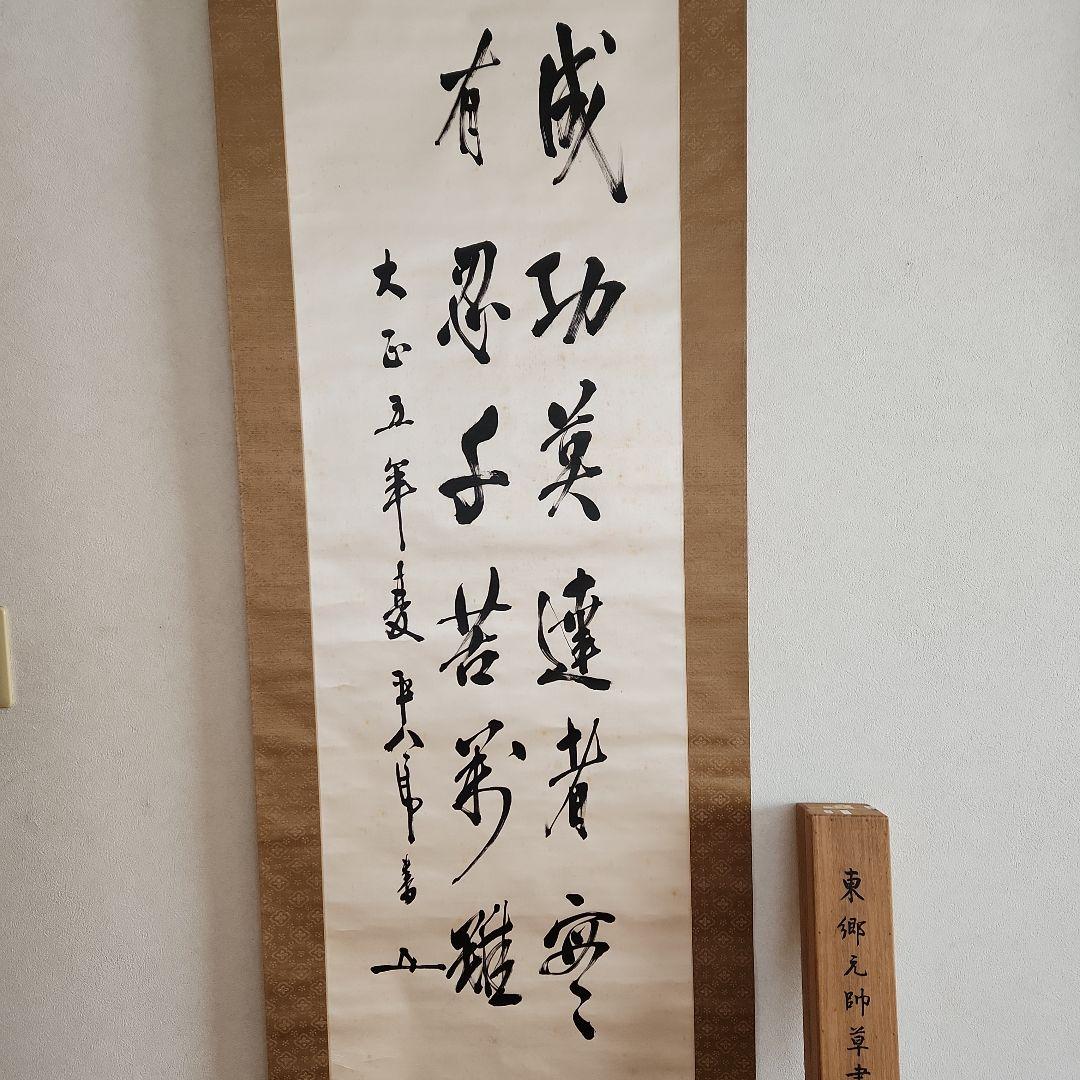 成功達者
有忍千苦萬難
大正五年夏 平八郎書
東郷元帥草書